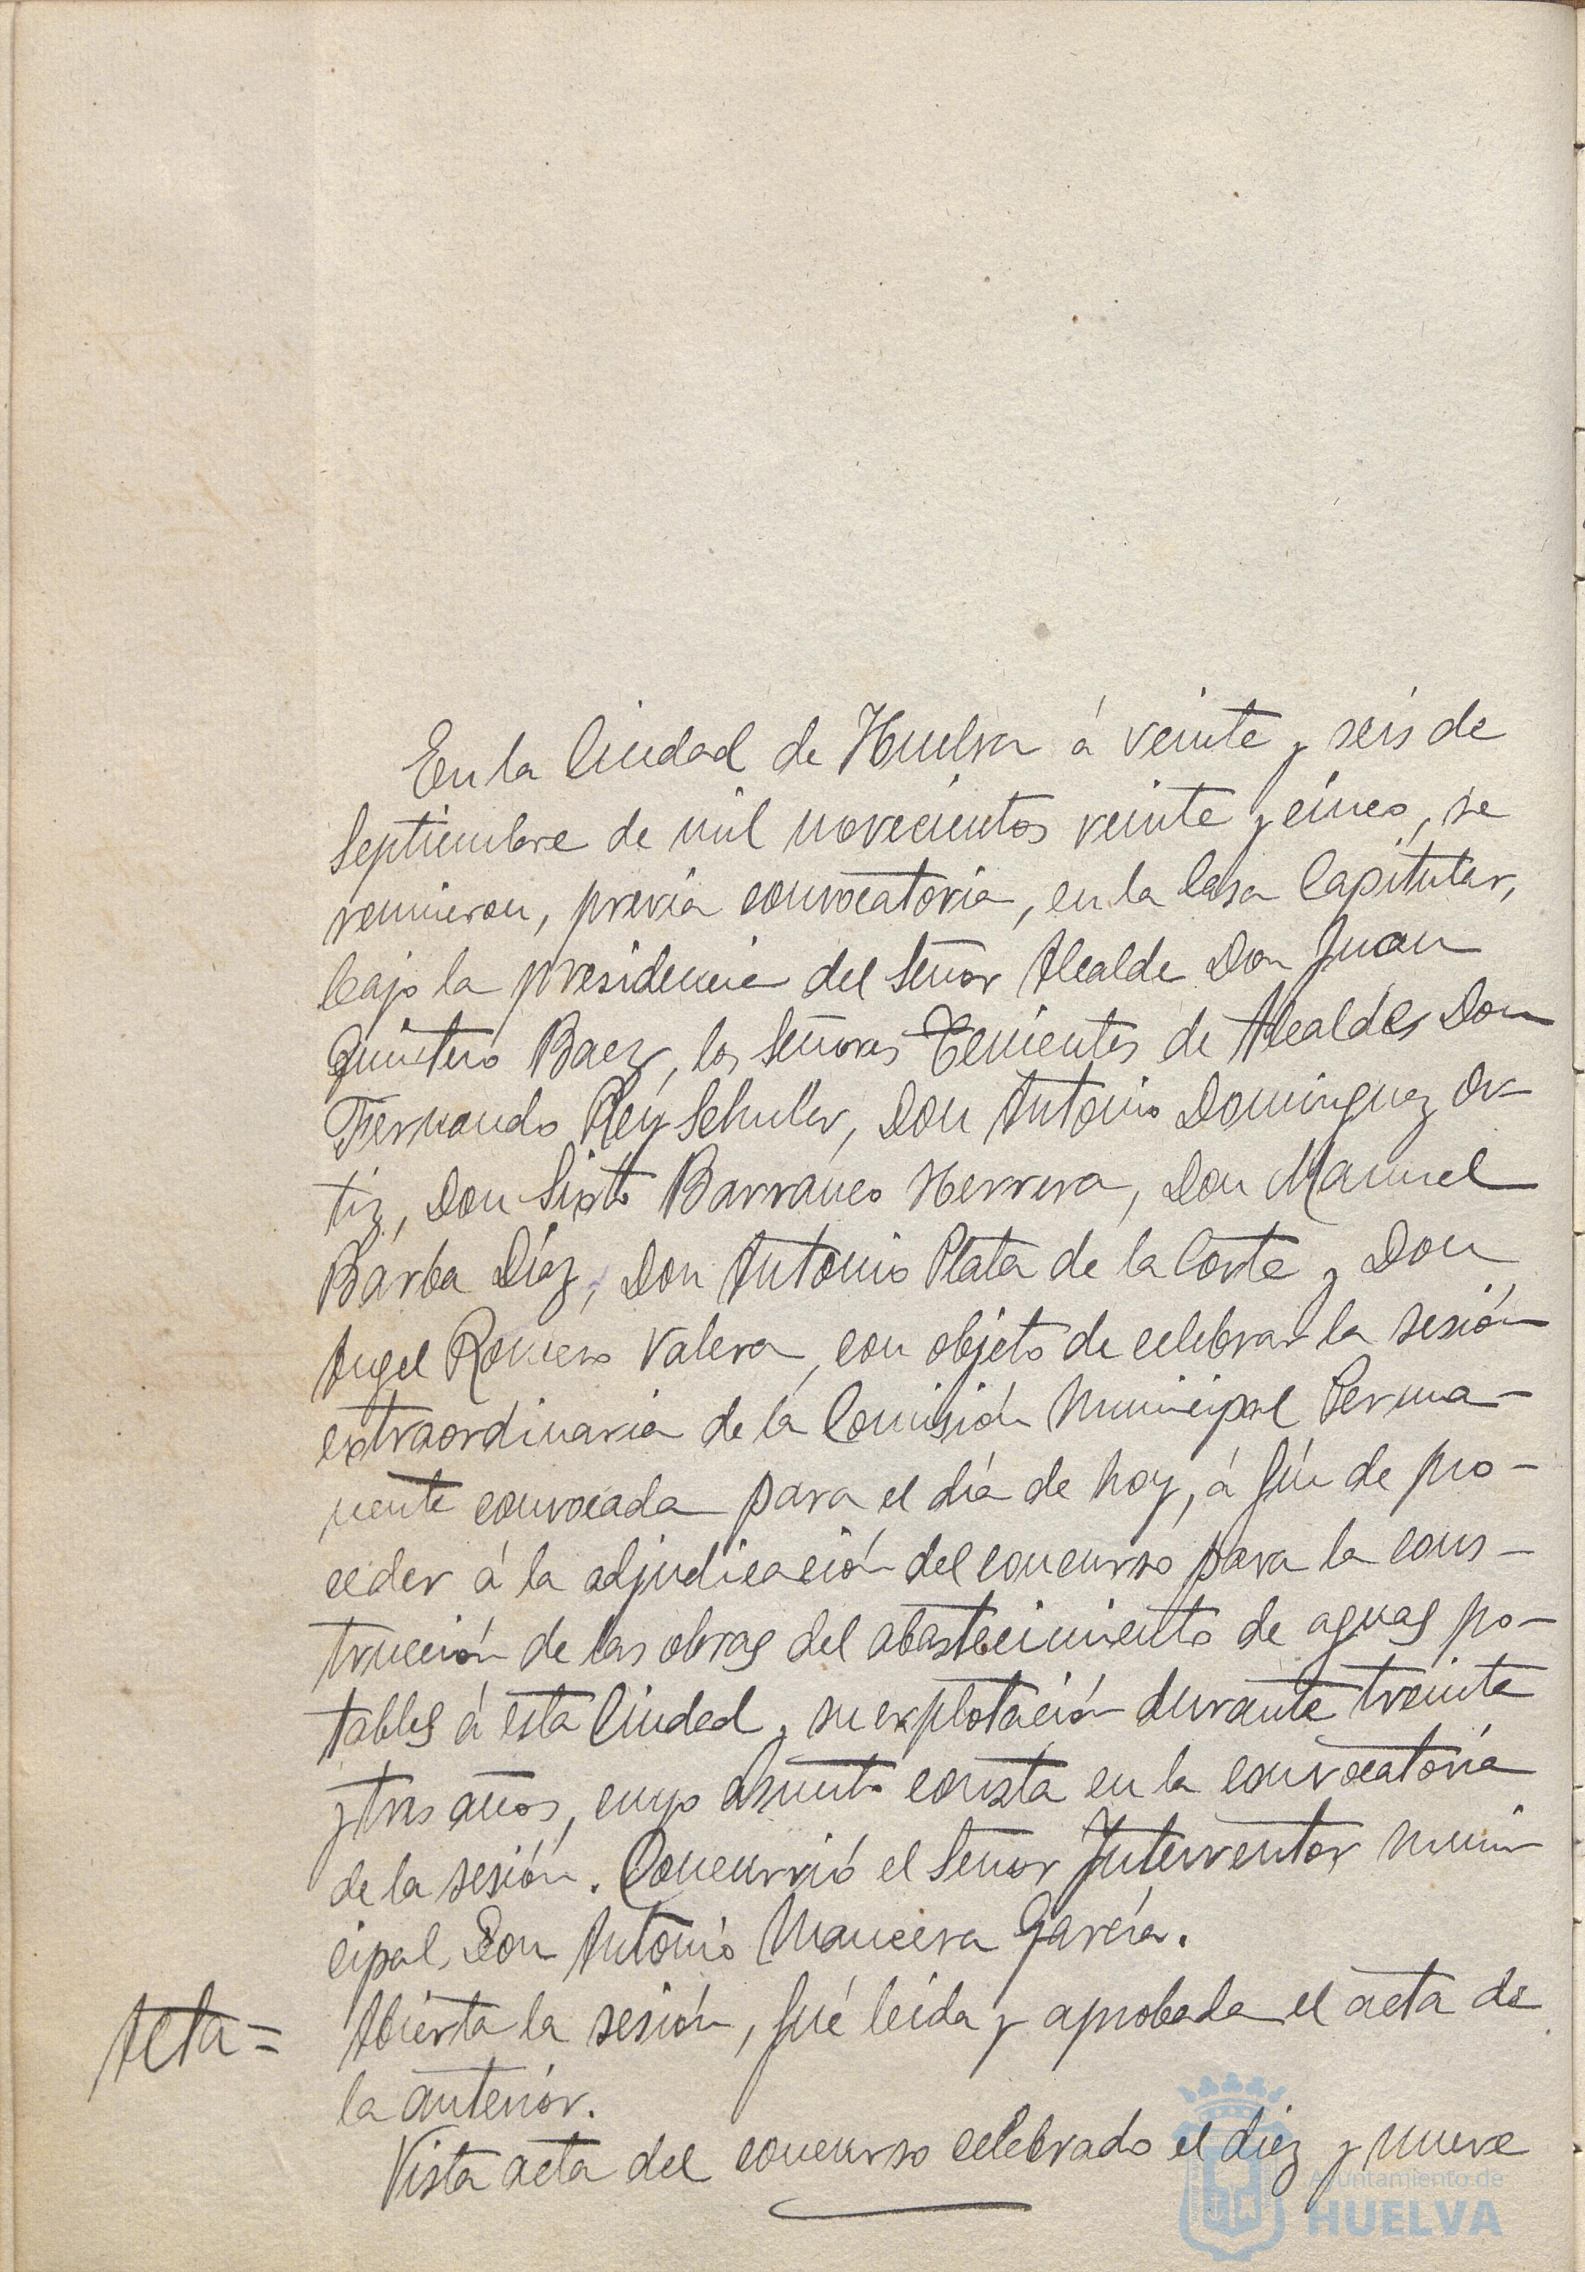 En la Ciudad de Huelva á veinte y seis de
Septiembre de mil novecientos veinte y cinco, se
reunieron, previa convocatoria, en la Casa Capitular,
bajo la presidencia del Señor Alcalde Don Juan
Quintero Baez, los Señores Tenientes de Alcaldes Don
Fernando Rey Schuler, Don Antonio Dominguez Or-
tiz, Don Sixto Barranco Herrera, Don Manuel
Bárba Díaz, Don Antonio Plata de la Corte y Don
Angel Romero Valera, con objeto de celebrar la sesión
extraordinaria de la Comisión Municipal Perma-
nente convocada para el día de hoy, á fín de pro-
ceder á la adjudicación del concurso para la cons-
trucción de las obras del abastecimiento de aguas po-
tables á esta Ciudad y su explotación durante treinta
y tres años, cuyo asunto consta en la convocatoria
de la sesión. Concurrió el Señor Interventor muni-
cipal, Don Antonio Mancera García.
Acta = Abierta la sesión, fué leida y aprobada el acta de
la anterior.
Vista acta del concurso celebrado el diez y nueve
Ayuntamiento de
HUELVA